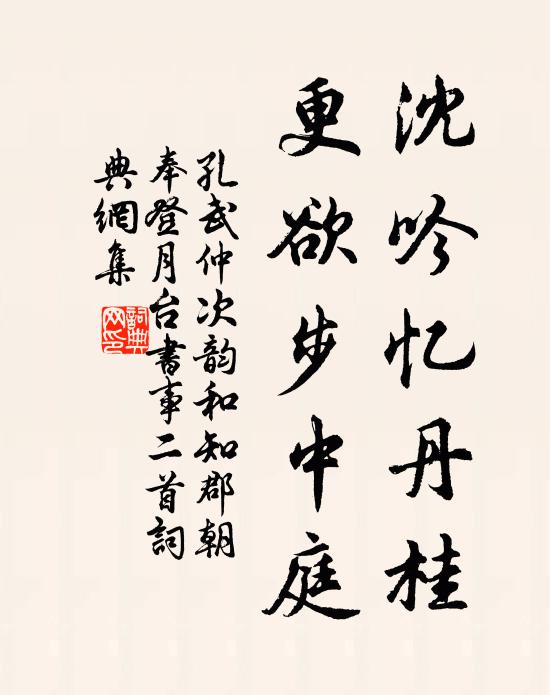 沈吟忆丹桂
更欲步中庭
孔武仲次韵和知郡朝
奉登月台书事二首词
典網集
詞典
网印